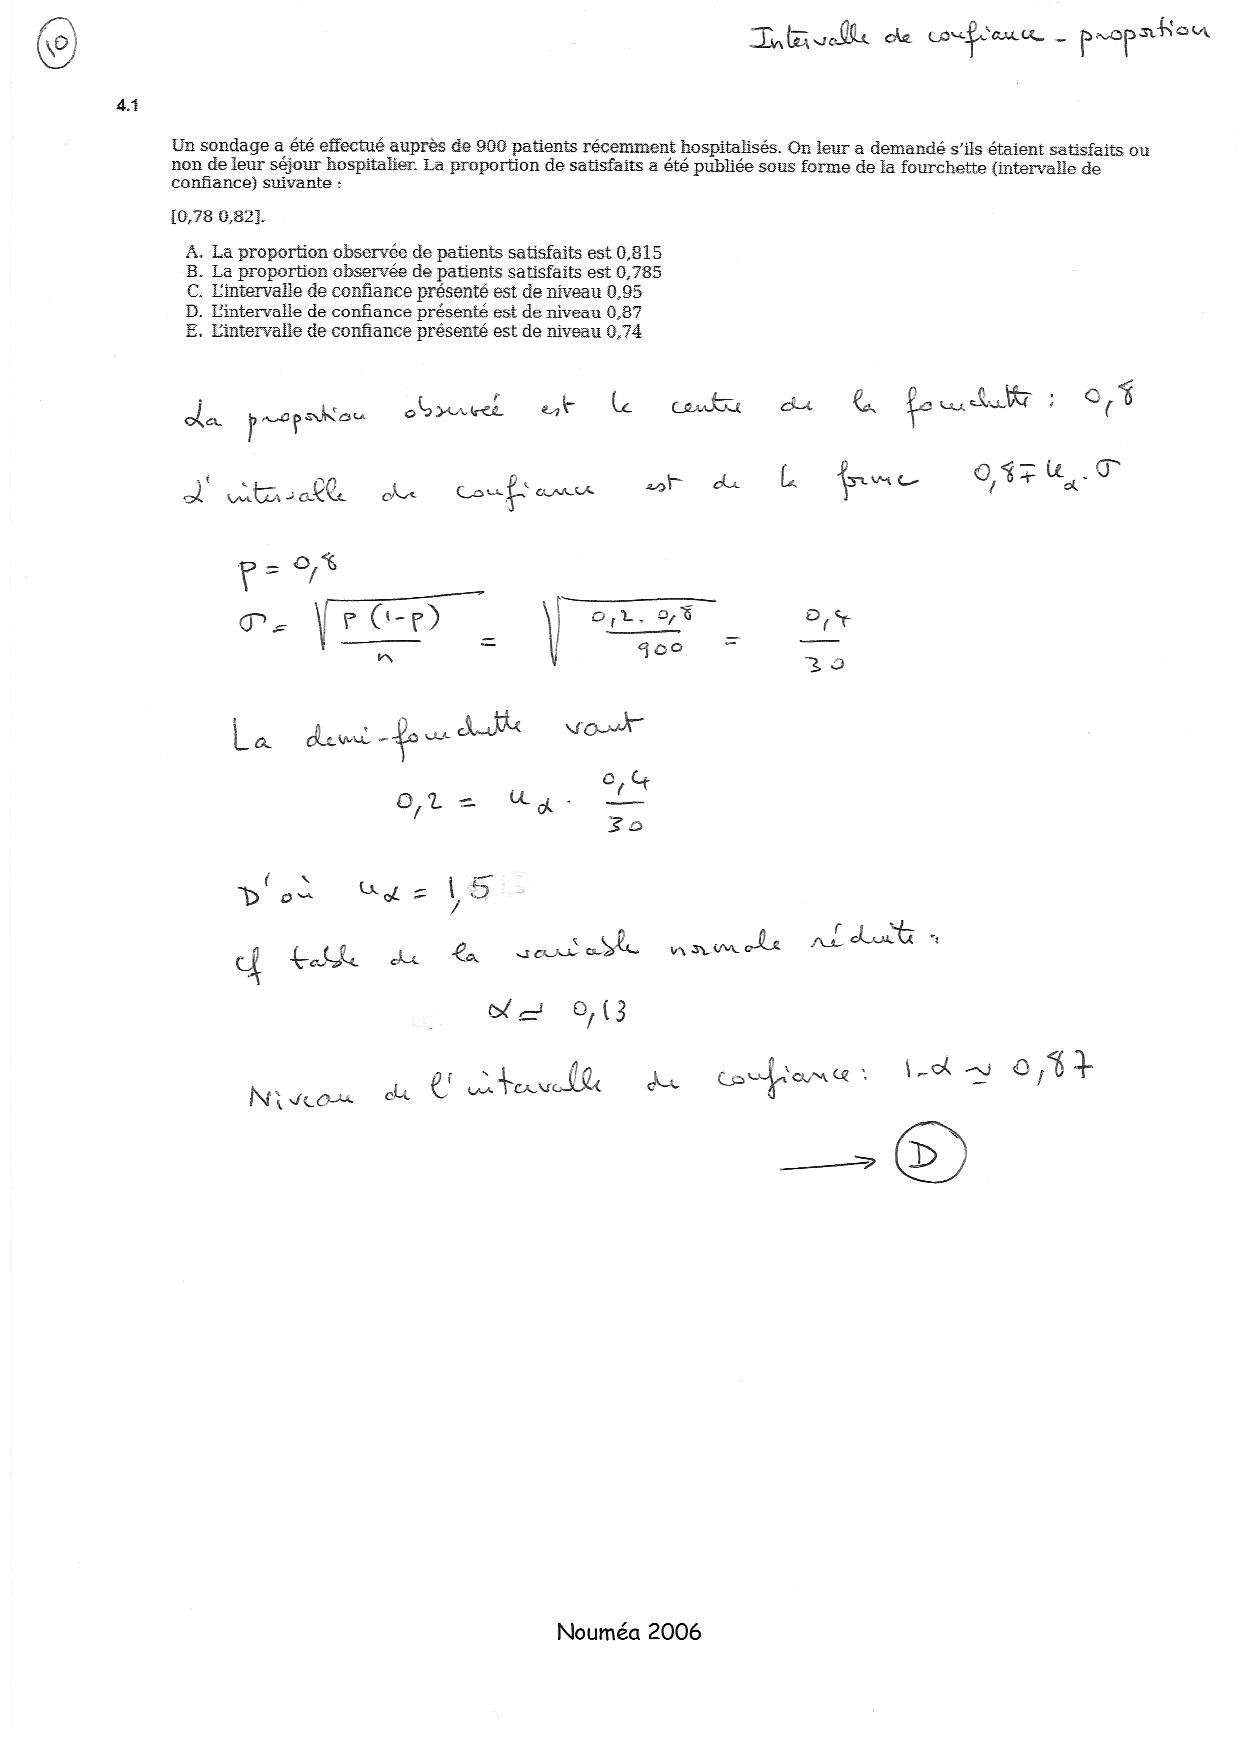 10
Intervalle de confiance - proportion
4.1
Un sondage a été effectué auprès de 900 patients récemment hospitalisés. On leur a demandé s'ils étaient satisfaits ou
non de leur séjour hospitalier. La proportion de satisfaits a été publiée sous forme de la fourchette (intervalle de
confiance) suivante :
[0,78 0,82].
A. La proportion observée de patients satisfaits est 0,815
B. La proportion observée de patients satisfaits est 0,785
C. L'intervalle de confiance présenté est de niveau 0,95
D. L'intervalle de confiance présenté est de niveau 0,87
E. L'intervalle de confiance présenté est de niveau 0,74
La proportion observée est le centre de la fourchette : 0,8
L'intervalle de confiance est de la forme 0,8 ∓ uα . σ
p = 0,8
σ = √(p(1-p)/n) = √(0,2 . 0,8/900) = 0,4/30
La demi-fourchette vaut
0,2 = uα . 0,4/30
D'où uα = 1,5
cf table de la variable normale réduite :
α ≃ 0,13
Niveau de l'intervalle de confiance : 1-α ≃ 0,87
→ D
Nouméa 2006